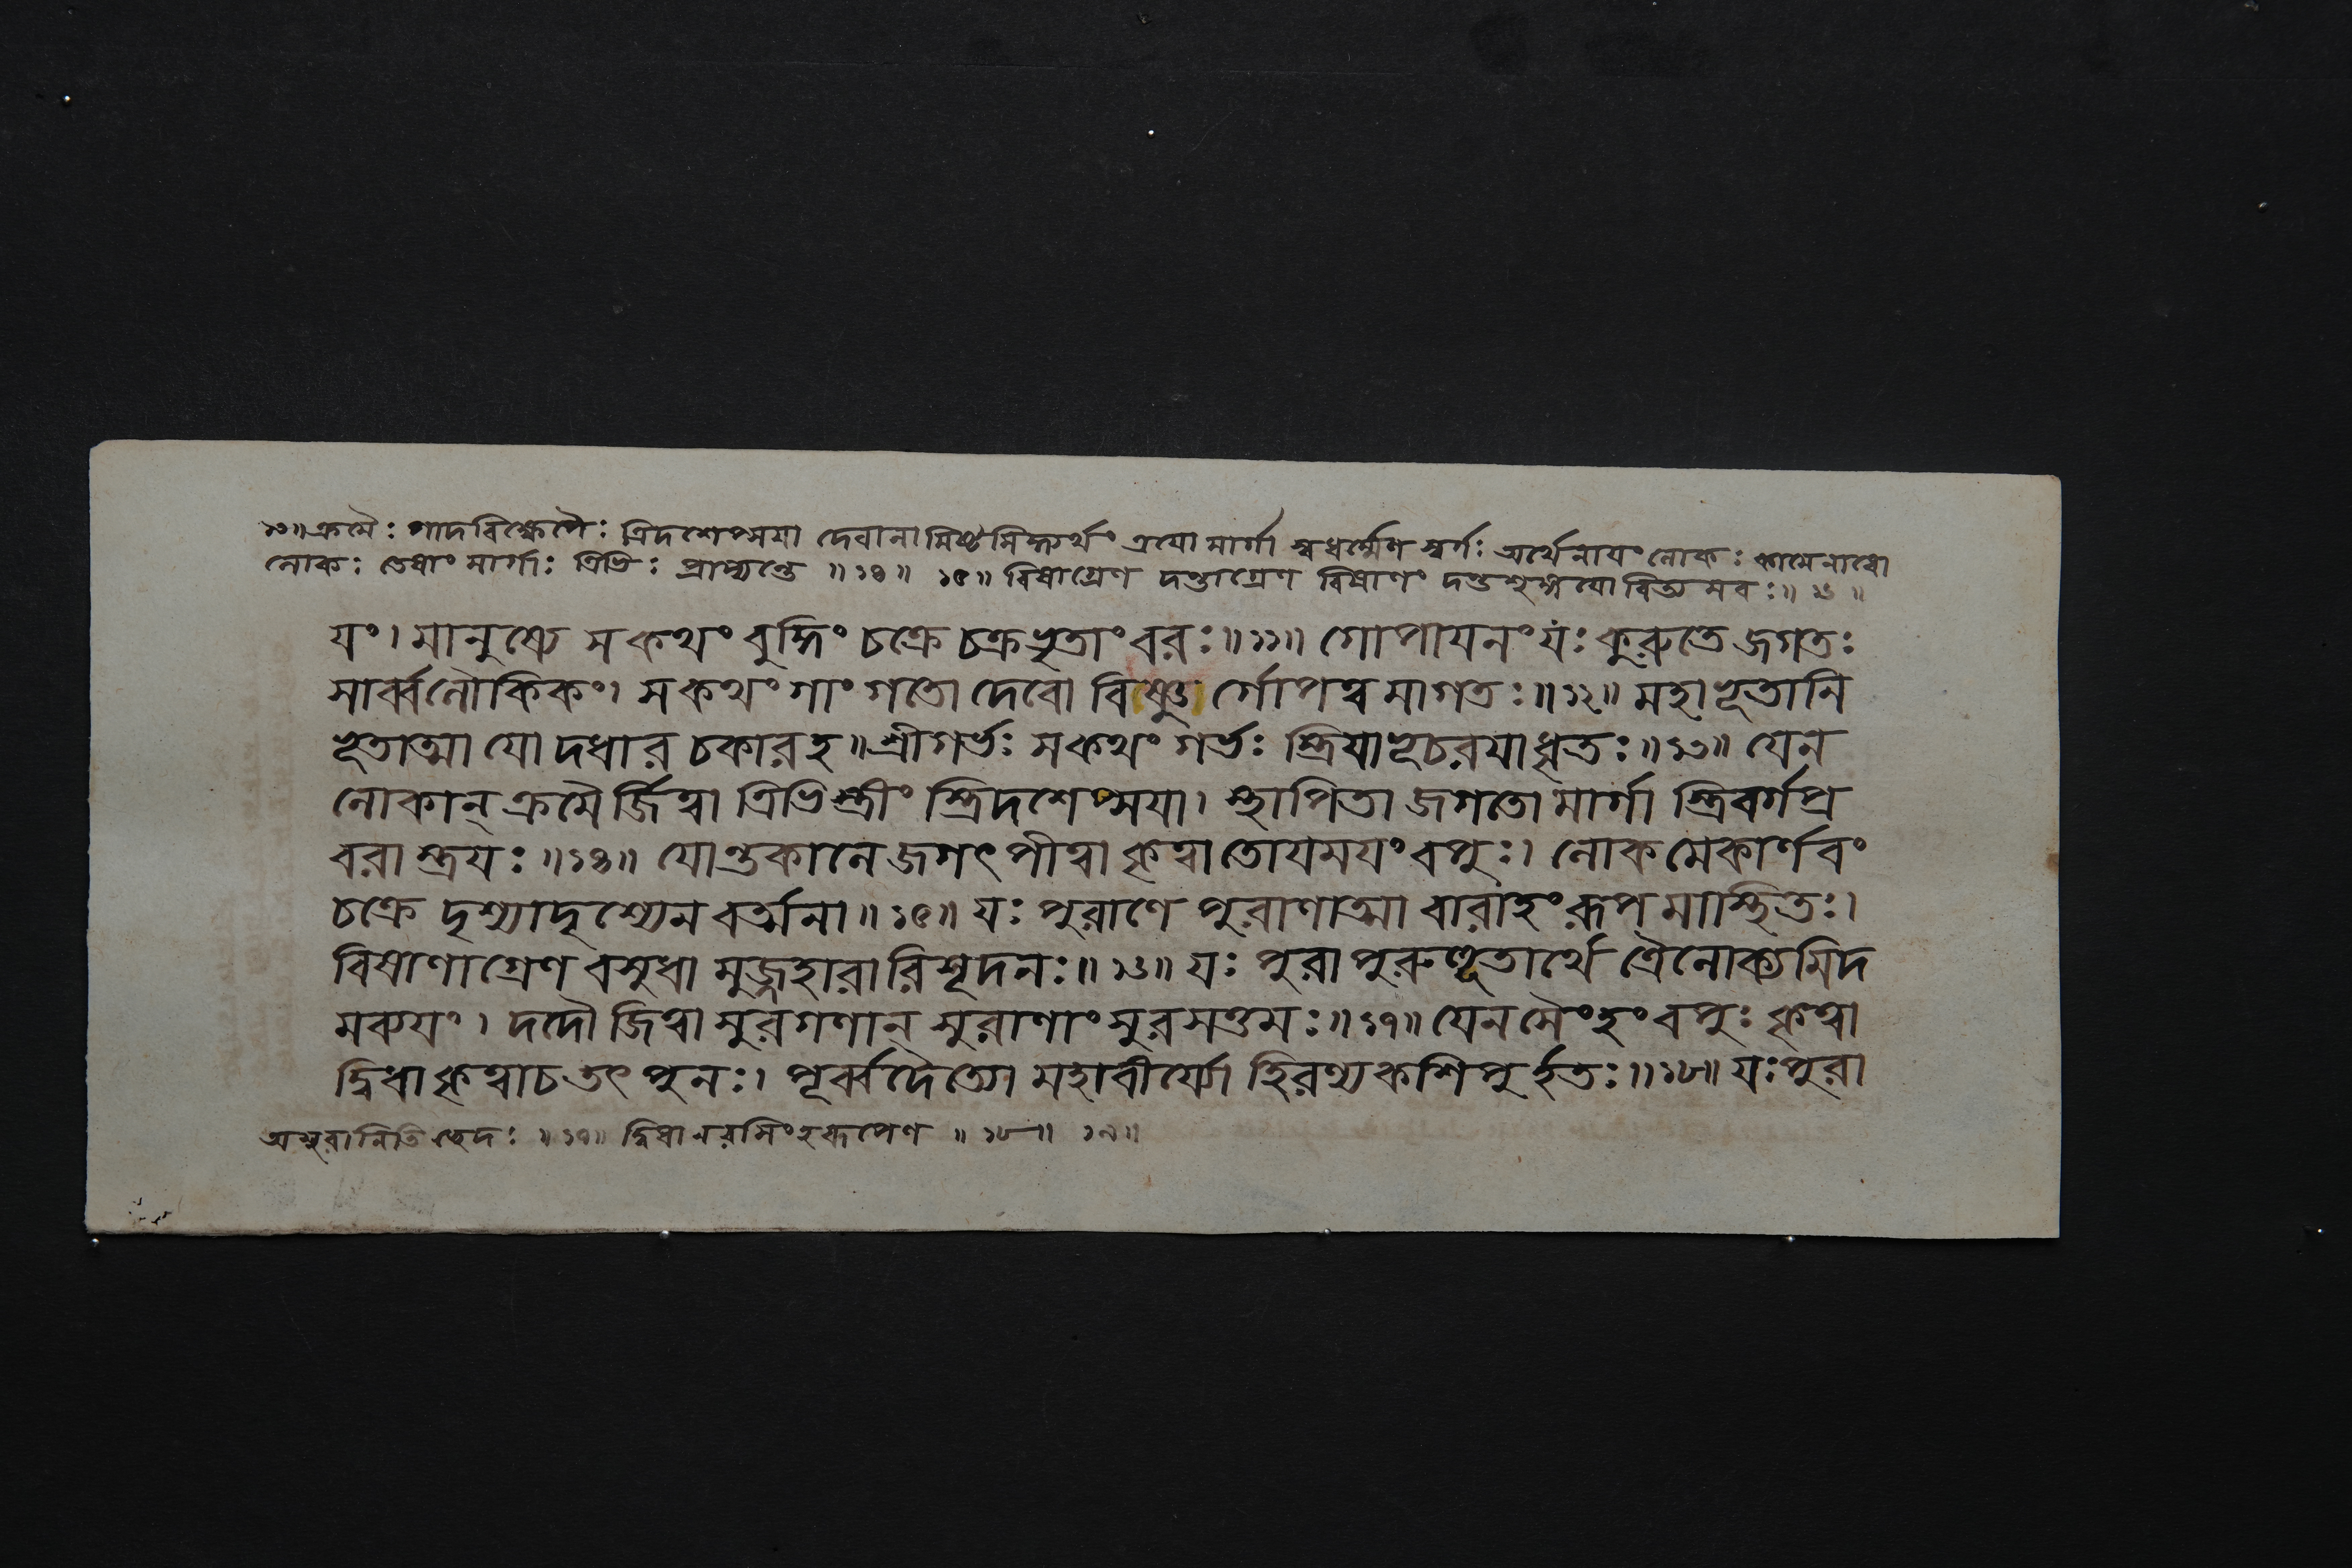 ১৩॥ ক্রমৈঃ পাদবিক্ষেপৈঃ ত্রিদশেপ্সয়া দেবানামিষ্টসিদ্ধ্যর্থং ত্রয়ো মার্গা স্বধর্ম্মেণ স্বর্গঃ অর্থেনায়ং লোকঃ কামেনাধো
লোকঃ তেষাং মার্গাঃ ত্রিভিঃ প্রাপ্যন্তে ॥১৪॥ ১৫॥ বিষাগ্রেণ দন্তাগ্রেণ বিষাণং দন্তশৃঙ্গয়োরিত্যমরঃ॥ ১৬॥
য়ং। মানুষ্যে স কথং বুদ্ধিং চক্রে চক্রভৃতাং বরঃ॥১১॥ গোপায়নং যঃ কুরুতে জগতঃ
সার্ব্বলৌকিকং। স কথং গাং গতো দেবো বিষ্ণু র্গোপত্ব মাগতঃ॥১২॥ মহাভূতানি
ভূতাত্মা যো দধার চকার হ॥ শ্রীগর্ভঃ স কথং গর্ভঃ স্ত্রিয়া ভূচরয়া ধৃতঃ॥১৩॥ যেন
লোকান্ ক্রমৈ র্জিত্বা ত্রিভিস্ত্রীং স্ত্রিদশেপ্সয়া। স্থাপিতা জগতো মার্গা স্ত্রিবর্গপ্র
বরা স্ত্রয়ঃ॥১৪॥ যোন্তকালে জগৎ পীত্বা কৃত্বা তোয়ময়ং বপুঃ। লোকমেকার্ণবং
চক্রে দৃশ্যাদৃশ্যেন বর্ত্মনা॥১৫॥ যঃ পুরাণে পুরাণাত্মা বারাহং রূপ মাস্থিতঃ।
বিষাণাগ্রেণ বসুধা মুজ্জহারারিসূদনঃ॥১৬॥ যঃ পুরা পুরুহূতার্থে ত্রৈলোক্যমিদ
মব্যয়ং। দদৌ জিত্বা সুরগণান্ সুরাণাং সুরসত্তমঃ॥১৭॥ যেন সৈংহং বপুঃ কৃত্বা
দ্বিধা কৃত্বা চ তৎ পুনঃ। পূর্ব্বদৈত্যো মহাবীর্য্যো হিরণ্যকশিপু র্হতঃ॥১৮॥ যঃ পুরা
অসুরানিতি ছেদঃ॥১৭॥ দ্বিধা নরসিংহরূপেণ॥১৮॥ ১৯॥